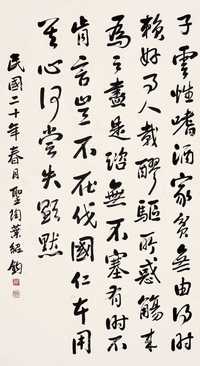 子雲性嗜酒家貧無由得時
賴好事人載醪驅所惑觴来
為之盡是諮無不塞有時不
肯言豈不在伐國仁者用
其心何嘗失顯默
民國二十年春月聖陶葉紹鈞